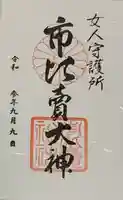 女人守護所
市比賣大神
令和
参年九月九日